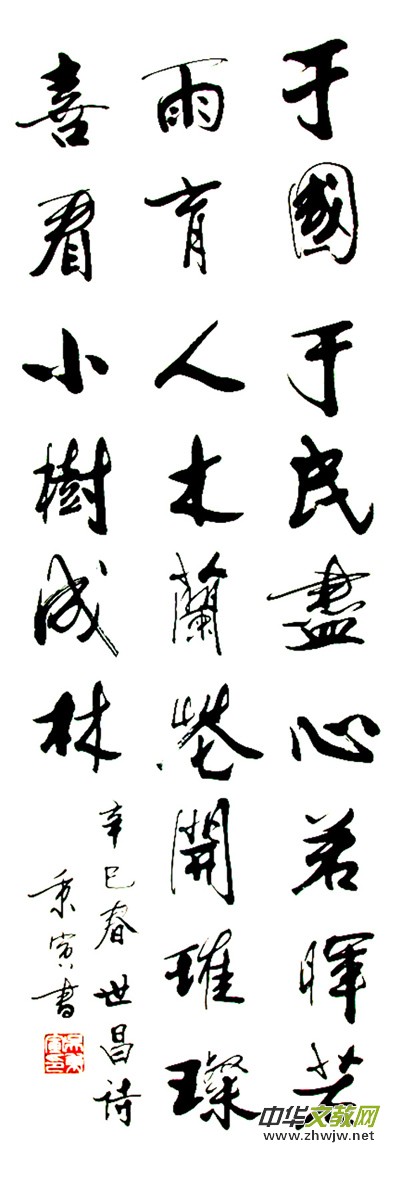 于國于民盡心若暉若
雨育人木蘭花開璀璨
喜看小樹成林
辛巳春世昌詩
秉寅書
中华文教网
www.zhwjw.net